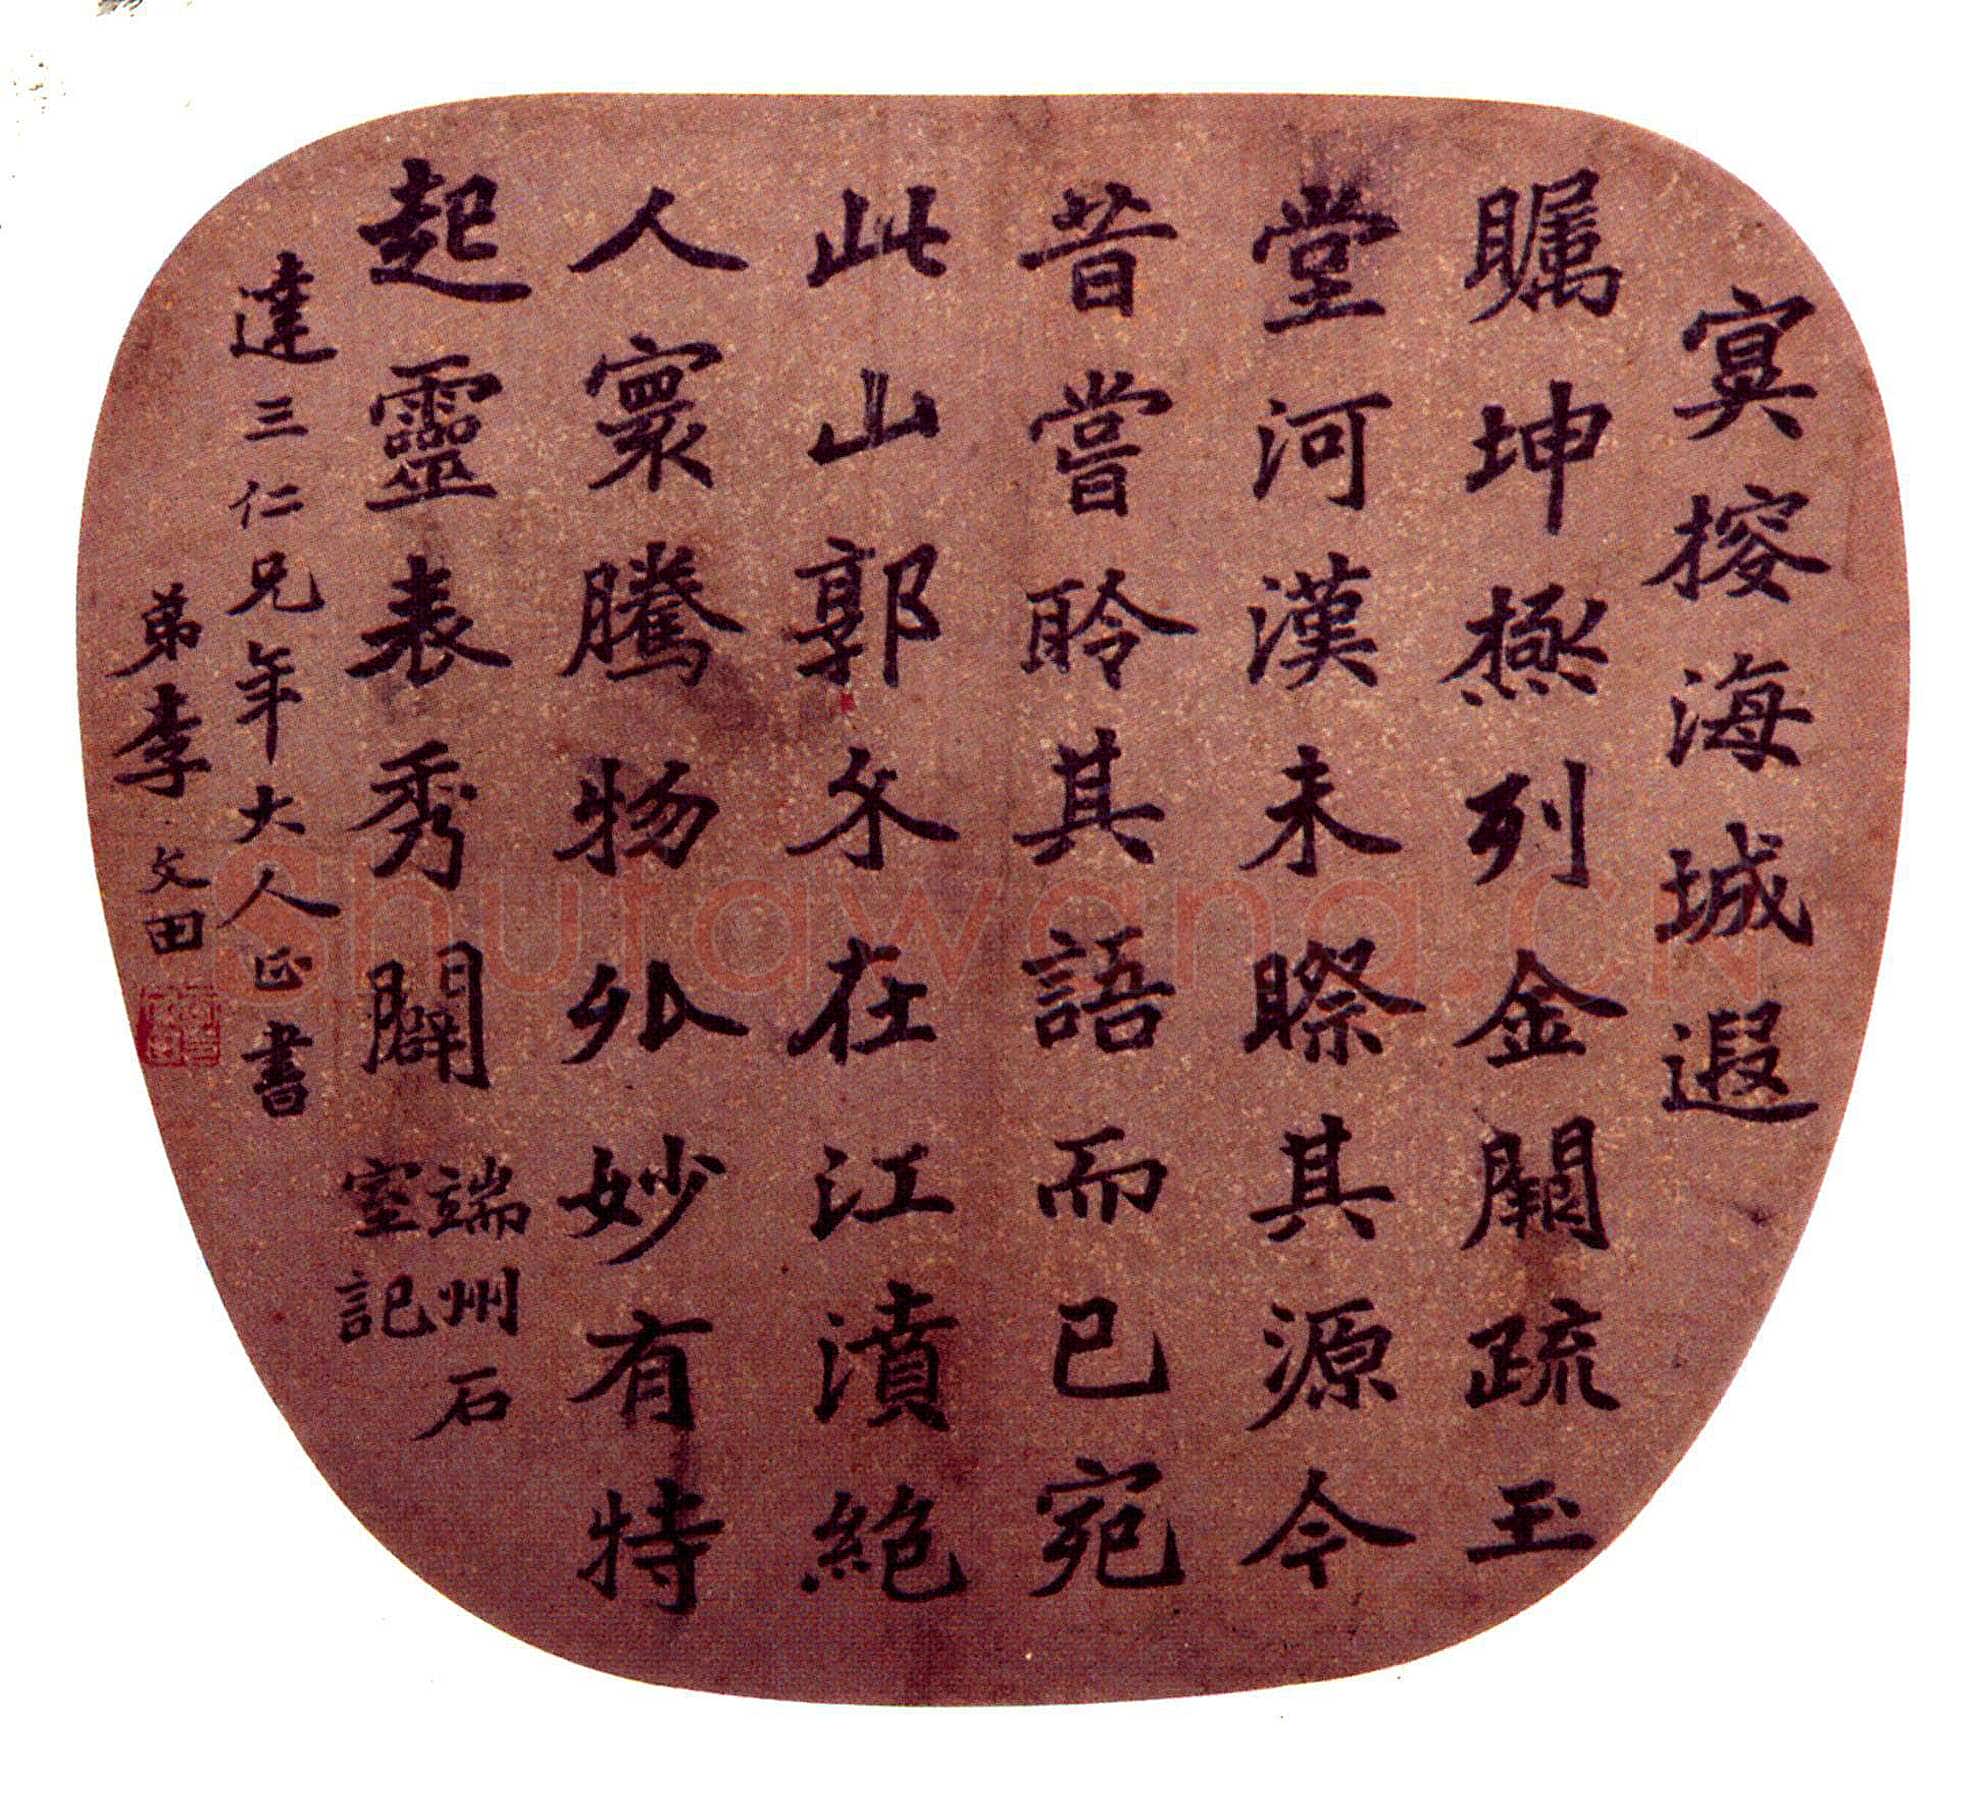 冥搜海城遐
矚坤極列金闕疏玉
堂河漢未際其源今
昔嘗聆其語而已宛
此山郭介在江濆絶
人寰騰物外妙有特
起靈表秀闢
端州石
室記
達三仁兄年大人正書
弟李文田
Shufawang.CN